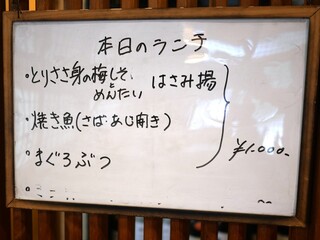 本日のランチ
・とりささ身の梅しそ、めんたい はさみ揚
・焼き魚(さば・あじ開き)
・まぐろぶつ
¥1.000-